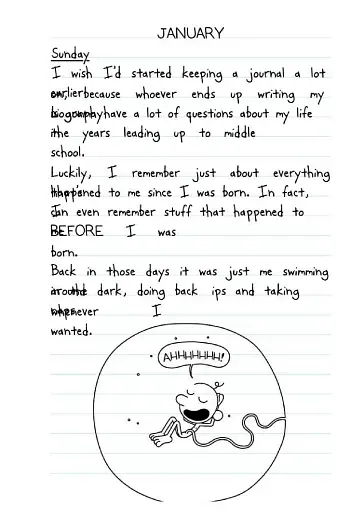 JANUARY
Sunday
I wish I'd started keeping a journal a lot
earlier on, because whoever ends up writing my
biography is gonna have a lot of questions about my life
in the years leading up to middle
school.
Luckily, I remember just about everything
that's happened to me since I was born. In fact,
I can even remember stuff that happened to
me BEFORE I was
born.
Back in those days it was just me swimming
around in the dark, doing back ips and taking
naps whenever I
wanted.
AHHHHHHH!